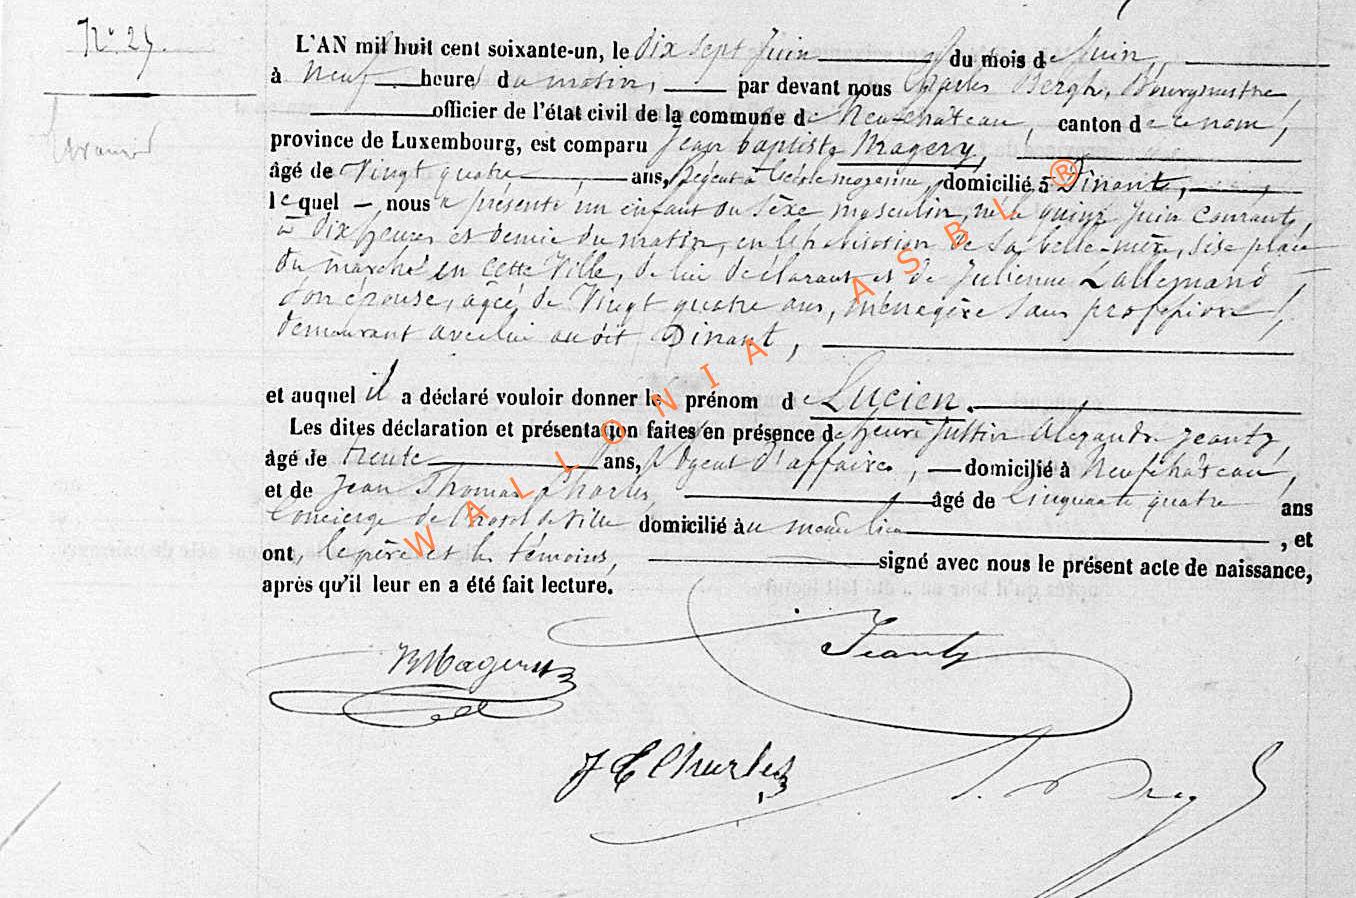 N° 27
L'AN mil huit cent soixante-un, le dix sept Juin du mois de Juin,
à Neuf heures du matin, par devant nous Charles Bergh, Bourgmestre,
officier de l'état civil de la commune de Neufchâteau, canton de ce nom,
province de Luxembourg, est comparu Jean baptiste Magery,
âgé de Vingt quatre ans, Régent à l'école moyenne, domicilié à Dinant,
lequel nous a présenté un enfant du sexe masculin, né le quinze Juin courant,
à dix heures et demie du matin, en l'habitation de sa belle-mère, sise place
du marché en cette Ville, de lui déclarant et de Julienne Lallemand
son épouse, agée de Vingt quatre ans, ménagère sans profession,
demeurant avec lui au dit Dinant,
et auquel il a déclaré vouloir donner le prénom de Lucien.
Les dites déclaration et présentation faites en présence de henri Justin Alexandre Jeanty,
âgé de trente ans, Agent d'affaires, domicilié à Neufchâteau,
et de Jean Thomas Charles, âgé de Cinquante quatre ans
Concierge de l'hotel de Ville domicilié au même lieu, et
ont, le père et les témoins, signé avec nous le présent acte de naissance,
après qu'il leur en a été fait lecture.
Magery
Jeanty
J T Charles
WALLONIA ASBL ®